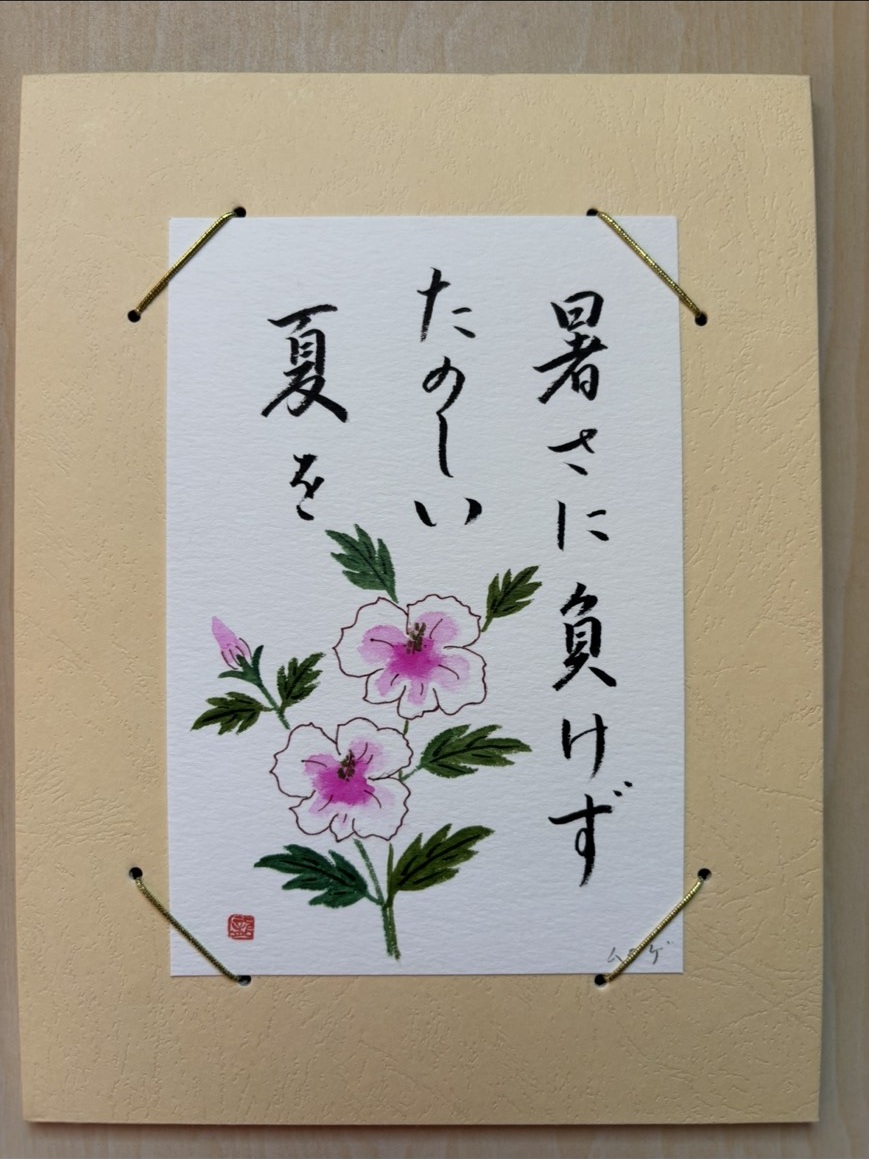 暑さに負けず
たのしい
夏を
ムクゲ